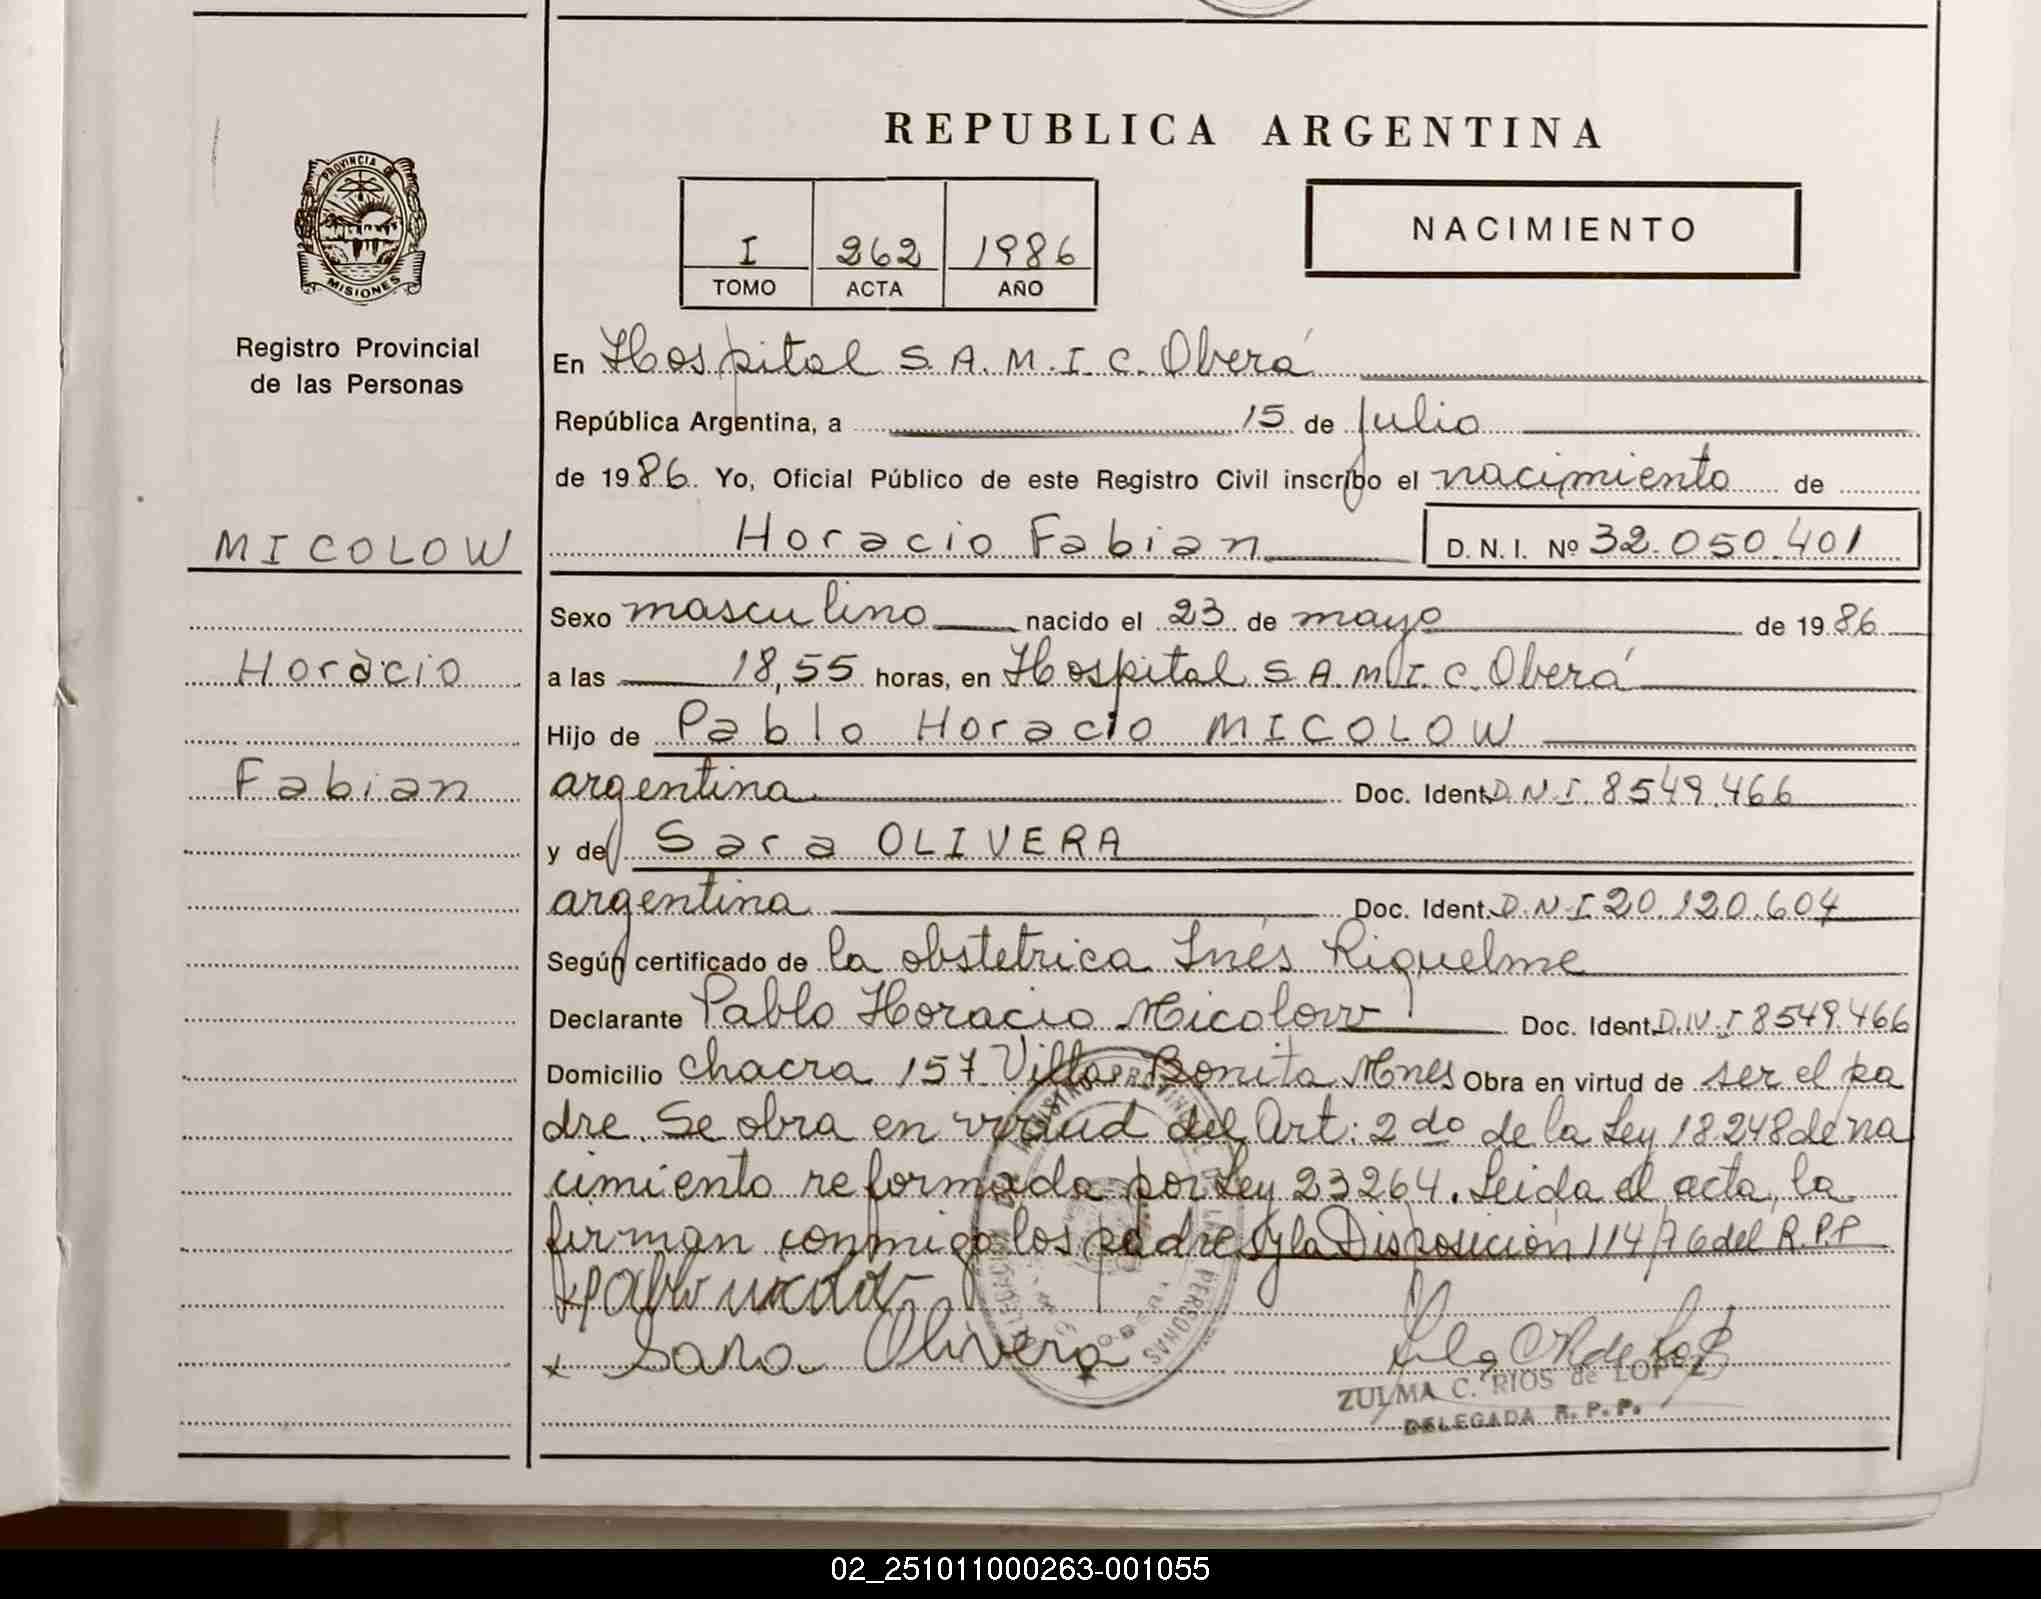 REPUBLICA ARGENTINA
PROVINCIA DE
MISIONES
Registro Provincial
de las Personas
I 262 1986
TOMO ACTA AÑO
NACIMIENTO
En Hospital S.A.M.I.C. Oberá
República Argentina, a 15 de julio
de 1986. Yo, Oficial Público de este Registro Civil inscribo el nacimiento de
MICOLOW
Horacio Fabian D.N.I. Nº 32.050.401
Sexo masculino nacido el 23 de mayo de 1986
Horacio
a las 18,55 horas, en Hospital S.A.M.I.C. Oberá
Hijo de Pablo Horacio MICOLOW
Fabian
argentina Doc. Ident. D.N.I. 8549.466
y de Sara OLIVERA
argentina Doc. Ident. D.N.I 20.120.604
Según certificado de la obstetrica Inés Riquelme
Declarante Pablo Horacio Micolow Doc. Ident. D.N.I 8549.466
Domicilio chacra 157 Villa Bonita Mnes Obra en virtud de ser el pa
dre. Se obra en virtud del Art: 2do de la Ley 18.248 de na
cimiento reformada por Ley 23264. Leida el acta, la
firman conmigo los padres y la Disposición 114/76 del R.P.P
Sara Olivera
ZULMA C. RIOS de LOPEZ
DELEGADA R.P.P.
02_251011000263-001055